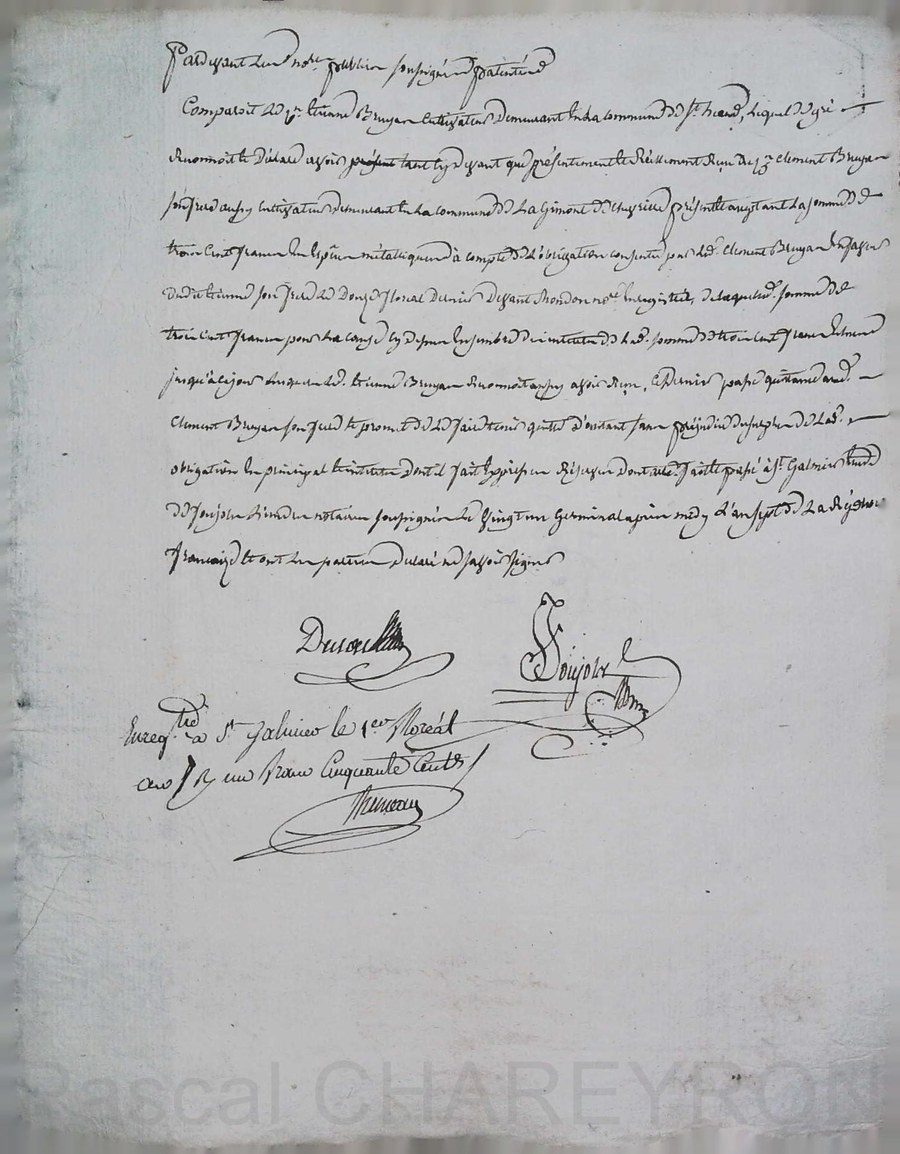 Pardevant les no.res publics soussignés patentés
Comparoit le C.en Etienne Bruyas cultivateur demeurant en la commune de St. heand, lequel de gré
reconnoit et déclare avoir présent tant cy devant que présentement et réellement reçu du C.en Clement Bruyas
son frere aussy cultivateur demeurant en la commune de La Gimont de Chevrieres présent et acceptant la somme de
trois cent francs en espèces métalliques à compte de l'obligation consentie par led. Clement Bruyas en faveur
dudit Etienne son frere le Douze floreal dernier devant Mondon no.re enregistrée, de laquelle somme de
trois cent francs pour les causes cy dessus ensemble des interets de lad. somme de trois cent francs
jusqu'à ce jour lesquels led. Etienne Bruyas reconnoit aussy avoir reçu, ce dernier passe quittance aud.
Clement Bruyas son frere et promet de le faire tenir quitte d'autant sans préjudice du surplus de lad.
obligation en principal et interets dont il fait expresse réserve dont acte. fait et passé à St. Galmier étude
de Soujole l'un des notaires soussignés le vingt un Germinal après midy l'an sept de la République
française et ont les parties déclaré ne savoir signer
Soujole
Enregistré a St. Galmier le 1.er floréal
an 7 R. un franc Cinquante Cents
Rascal CHAREYRON